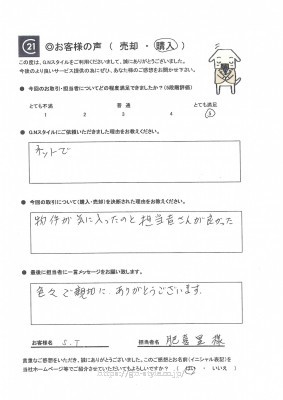 21 ◎お客様の声 （ 売却 ・ 購入 ）
この度は、G.Nスタイルをご利用くださいまして、誠にありがとうございました。
今後のより良いサービス提供の為にぜひ、あなた様のご感想をお聞かせ下さい。
● 今回のお取引・担当者についてどの程度満足できましたか？（5段階評価）
とても不満 普通 とても満足
1 2 3 4 5
● G.Nスタイルにご依頼いただきました理由をお教えください。
ネットで
● 今回の取引について（購入・売却）を決断された理由をお教えください。
物件が気に入ったのと担当者さんが良かった
● 最後に担当者に一言メッセージをお願い致します。
色々で親切に、ありがとうございます。
お客様名 S.T 担当者名 肥喜里 様
貴重なご感想をいただき、誠にありがとうございました。このご感想とお名前（イニシャル表記）を
当社ホームページ等でご紹介させていただいてもよろしいですか？ （ はい ・ いいえ ）